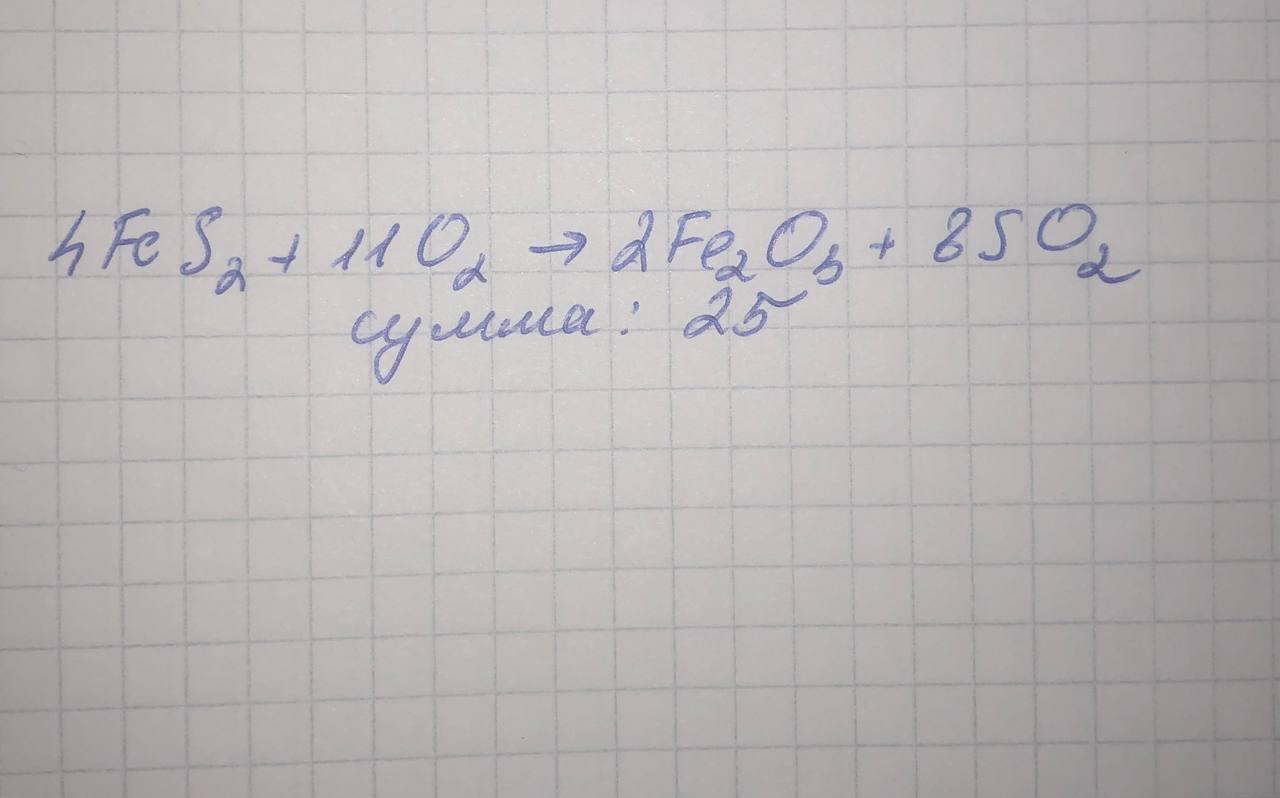 4FeS₂ + 11O₂ → 2Fe₂O₃ + 8SO₂
сумма: 25